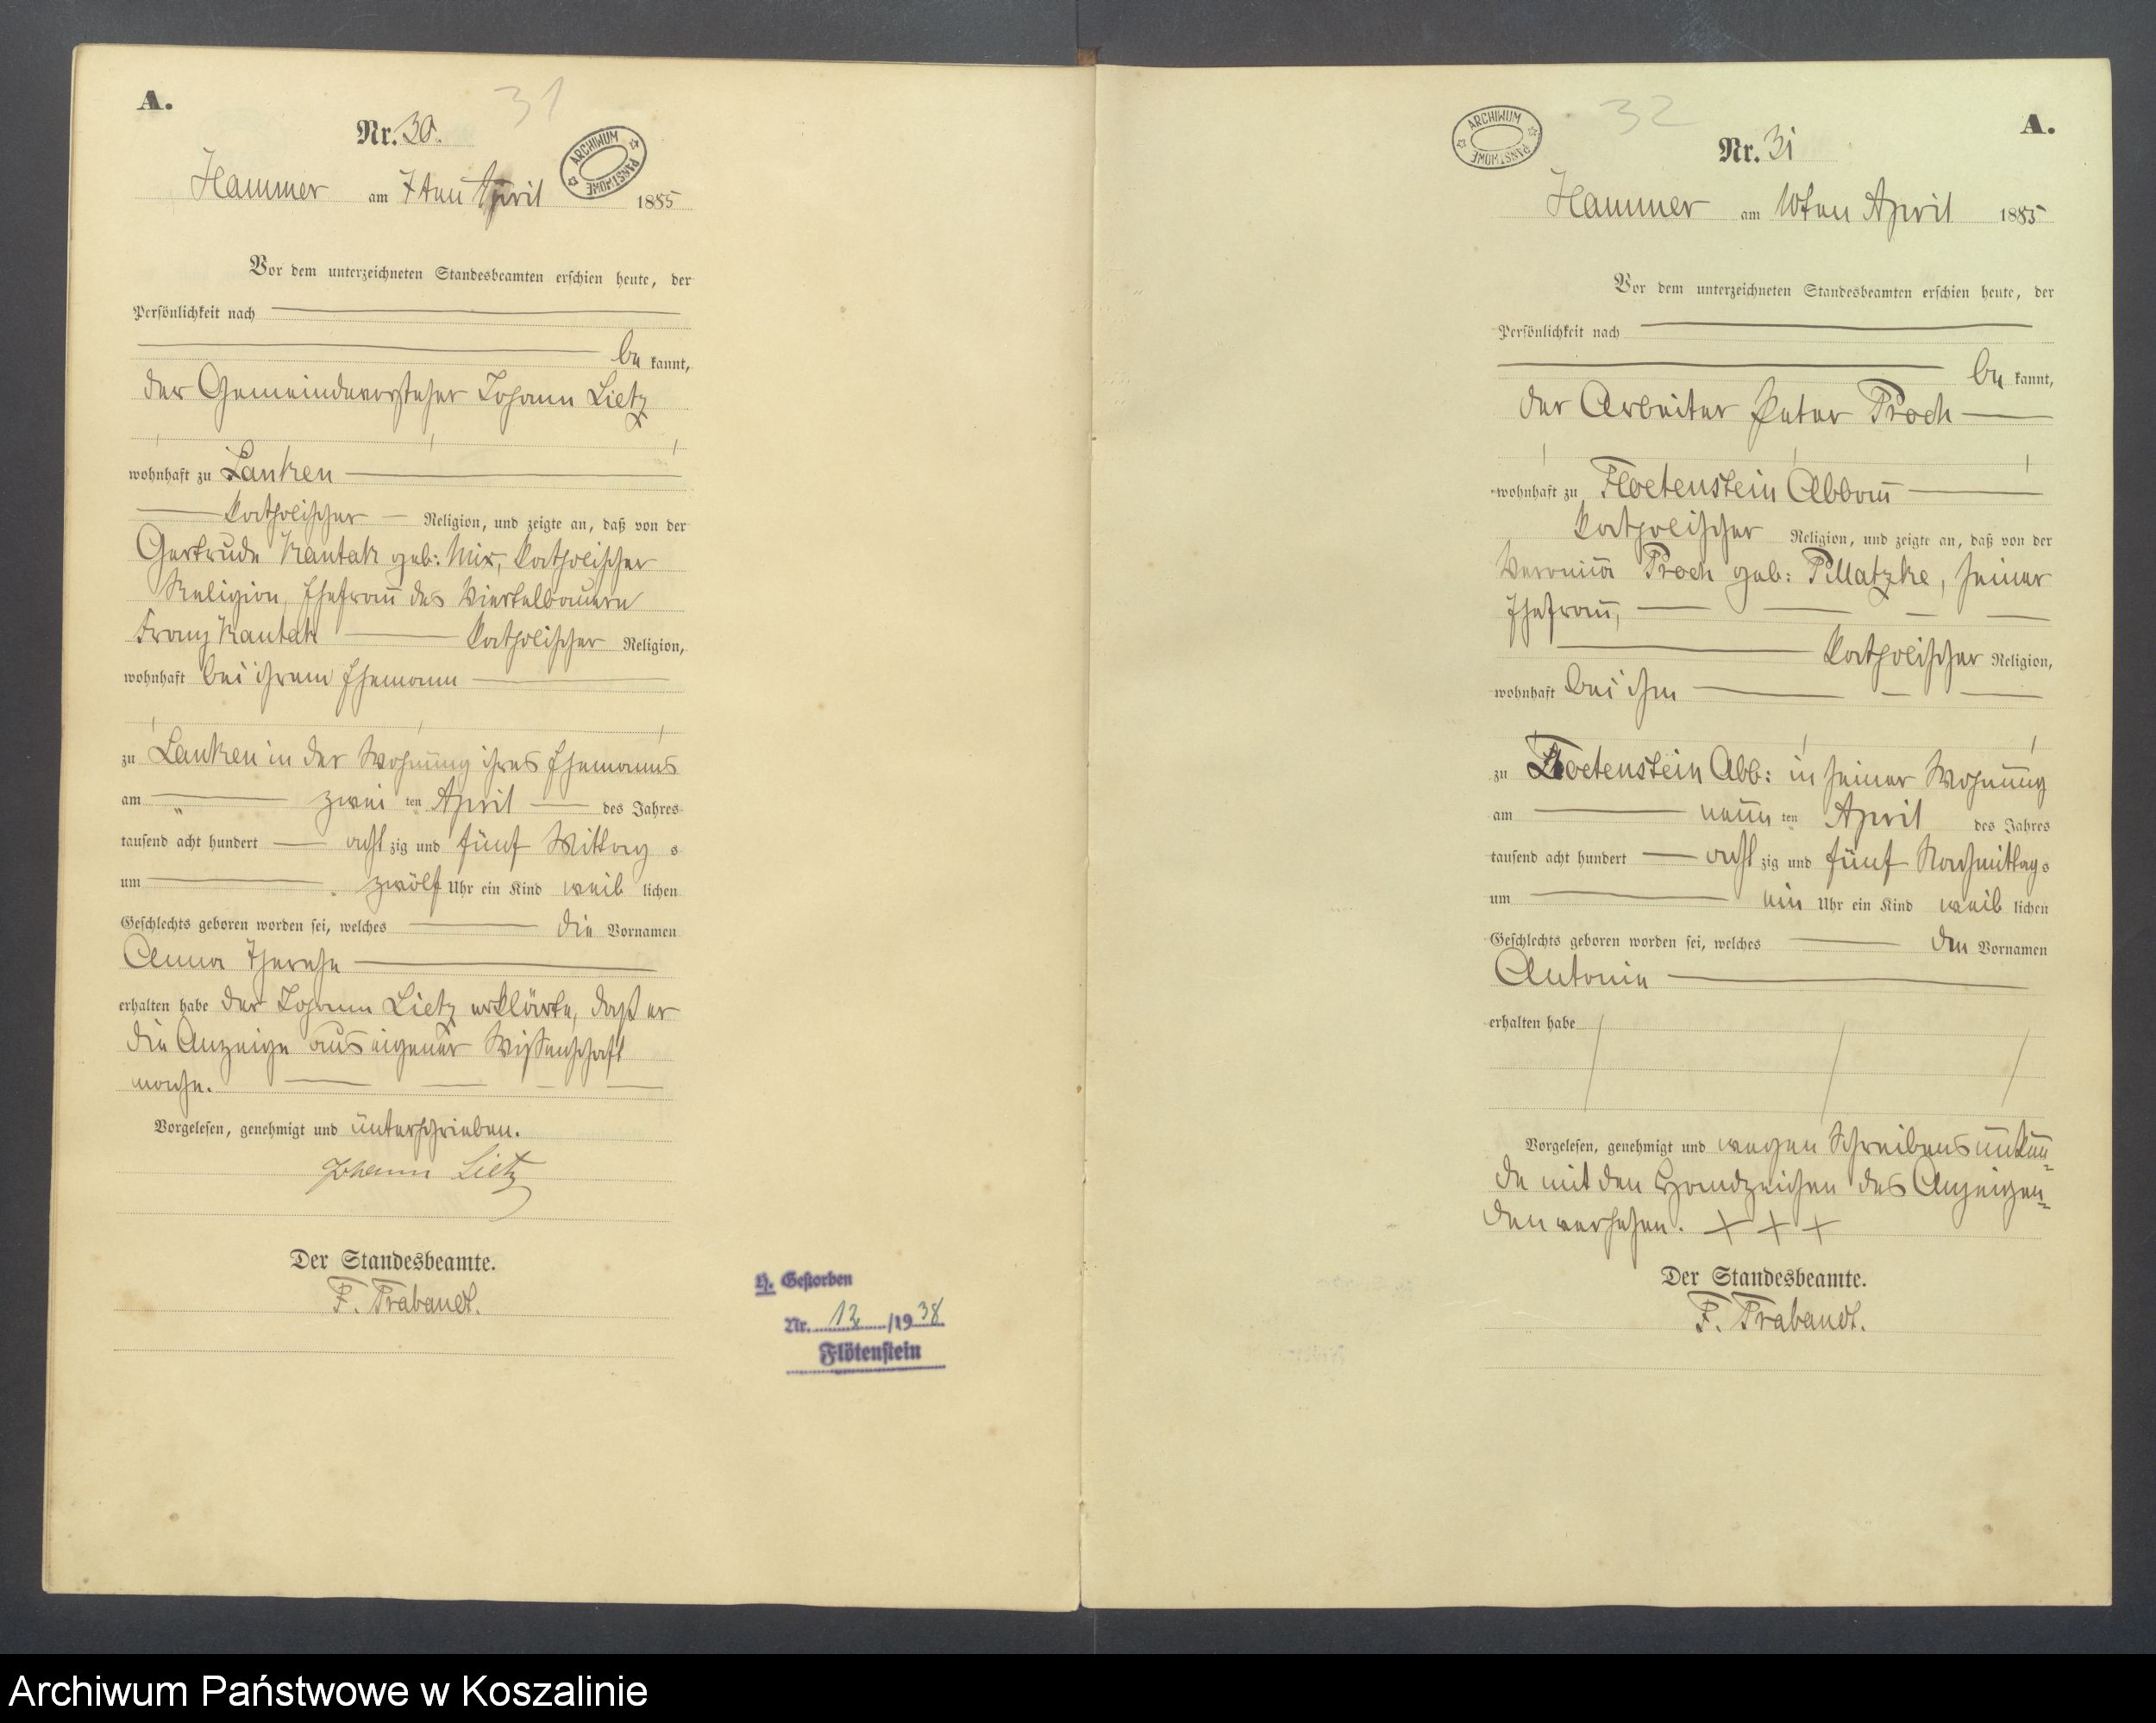 A.
31
Nr. 30.
ARCHIWUM PAŃSTWOWE
Hammer am 7ten April 1885
Vor dem unterzeichneten Standesbeamten erschien heute, der
Persönlichkeit nach
be kannt,
der Gemeindevorsteher Johann Lietz
wohnhaft zu Lanken
katholischer Religion, und zeigte an, daß von der
Gertrude Kantak geb: Mix, katholischer
Religion, Ehefrau des Viertelbauern
Franz Kantak katholischer Religion,
wohnhaft bei ihrem Ehemann
zu Lanken in der Wohnung ihres Ehemanns
am zwei ten April des Jahres
tausend acht hundert acht zig und fünf Mittag s
um zwölf Uhr ein Kind weib lichen
Geschlechts geboren worden sei, welches die Vornamen
Anna Therese
erhalten habe der Johann Lietz erklärte, daß er
die Anzeige aus eigener Wissenschaft
mache.
Vorgelesen, genehmigt und unterschrieben.
Johann Lietz
Der Standesbeamte.
F. Trabandt.
H. Gestorben
Nr. 12 /1938
Flötenstein
ARCHIWUM PAŃSTWOWE
32
A.
Nr. 31
Hammer am 10ten April 1885
Vor dem unterzeichneten Standesbeamten erschien heute, der
Persönlichkeit nach
be kannt,
der Arbeiter Peter Proch
wohnhaft zu Floetenstein Abbau
katholischer Religion, und zeigte an, daß von der
Veronica Proch geb: Pillatzke, seiner
Ehefrau,
katholischer Religion,
wohnhaft bei ihm
zu Floetenstein Abb: in seiner Wohnung
am neun ten April des Jahres
tausend acht hundert acht zig und fünf Nachmittag s
um ein Uhr ein Kind weib lichen
Geschlechts geboren worden sei, welches den Vornamen
Antonie
erhalten habe
Vorgelesen, genehmigt und wegen Schreibensunkun=
de mit den Handzeichen des Anzeigen=
den versehen. + + +
Der Standesbeamte.
F. Trabandt.
Archiwum Państwowe w Koszalinie